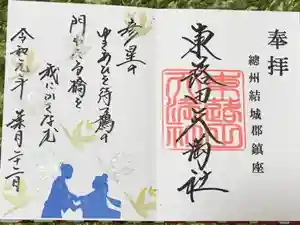 奉拝
總州結城郡鎮座
東蕗田天満社
彦星の
ゆきあひを待つ鵲の
門わたる橋を
我にかさなむ
令和元年 葉月